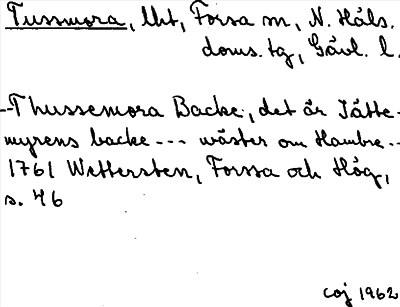 Tussmora, lht, Forsa sn, N. Häls.
doms. tg, Gävl. l.
--Thussemora Backe, det är Jätte-
myrens backe --- wäster om Hambre--
1761 Wettersten, Forssa och Hög,
s. 46
coj 1962